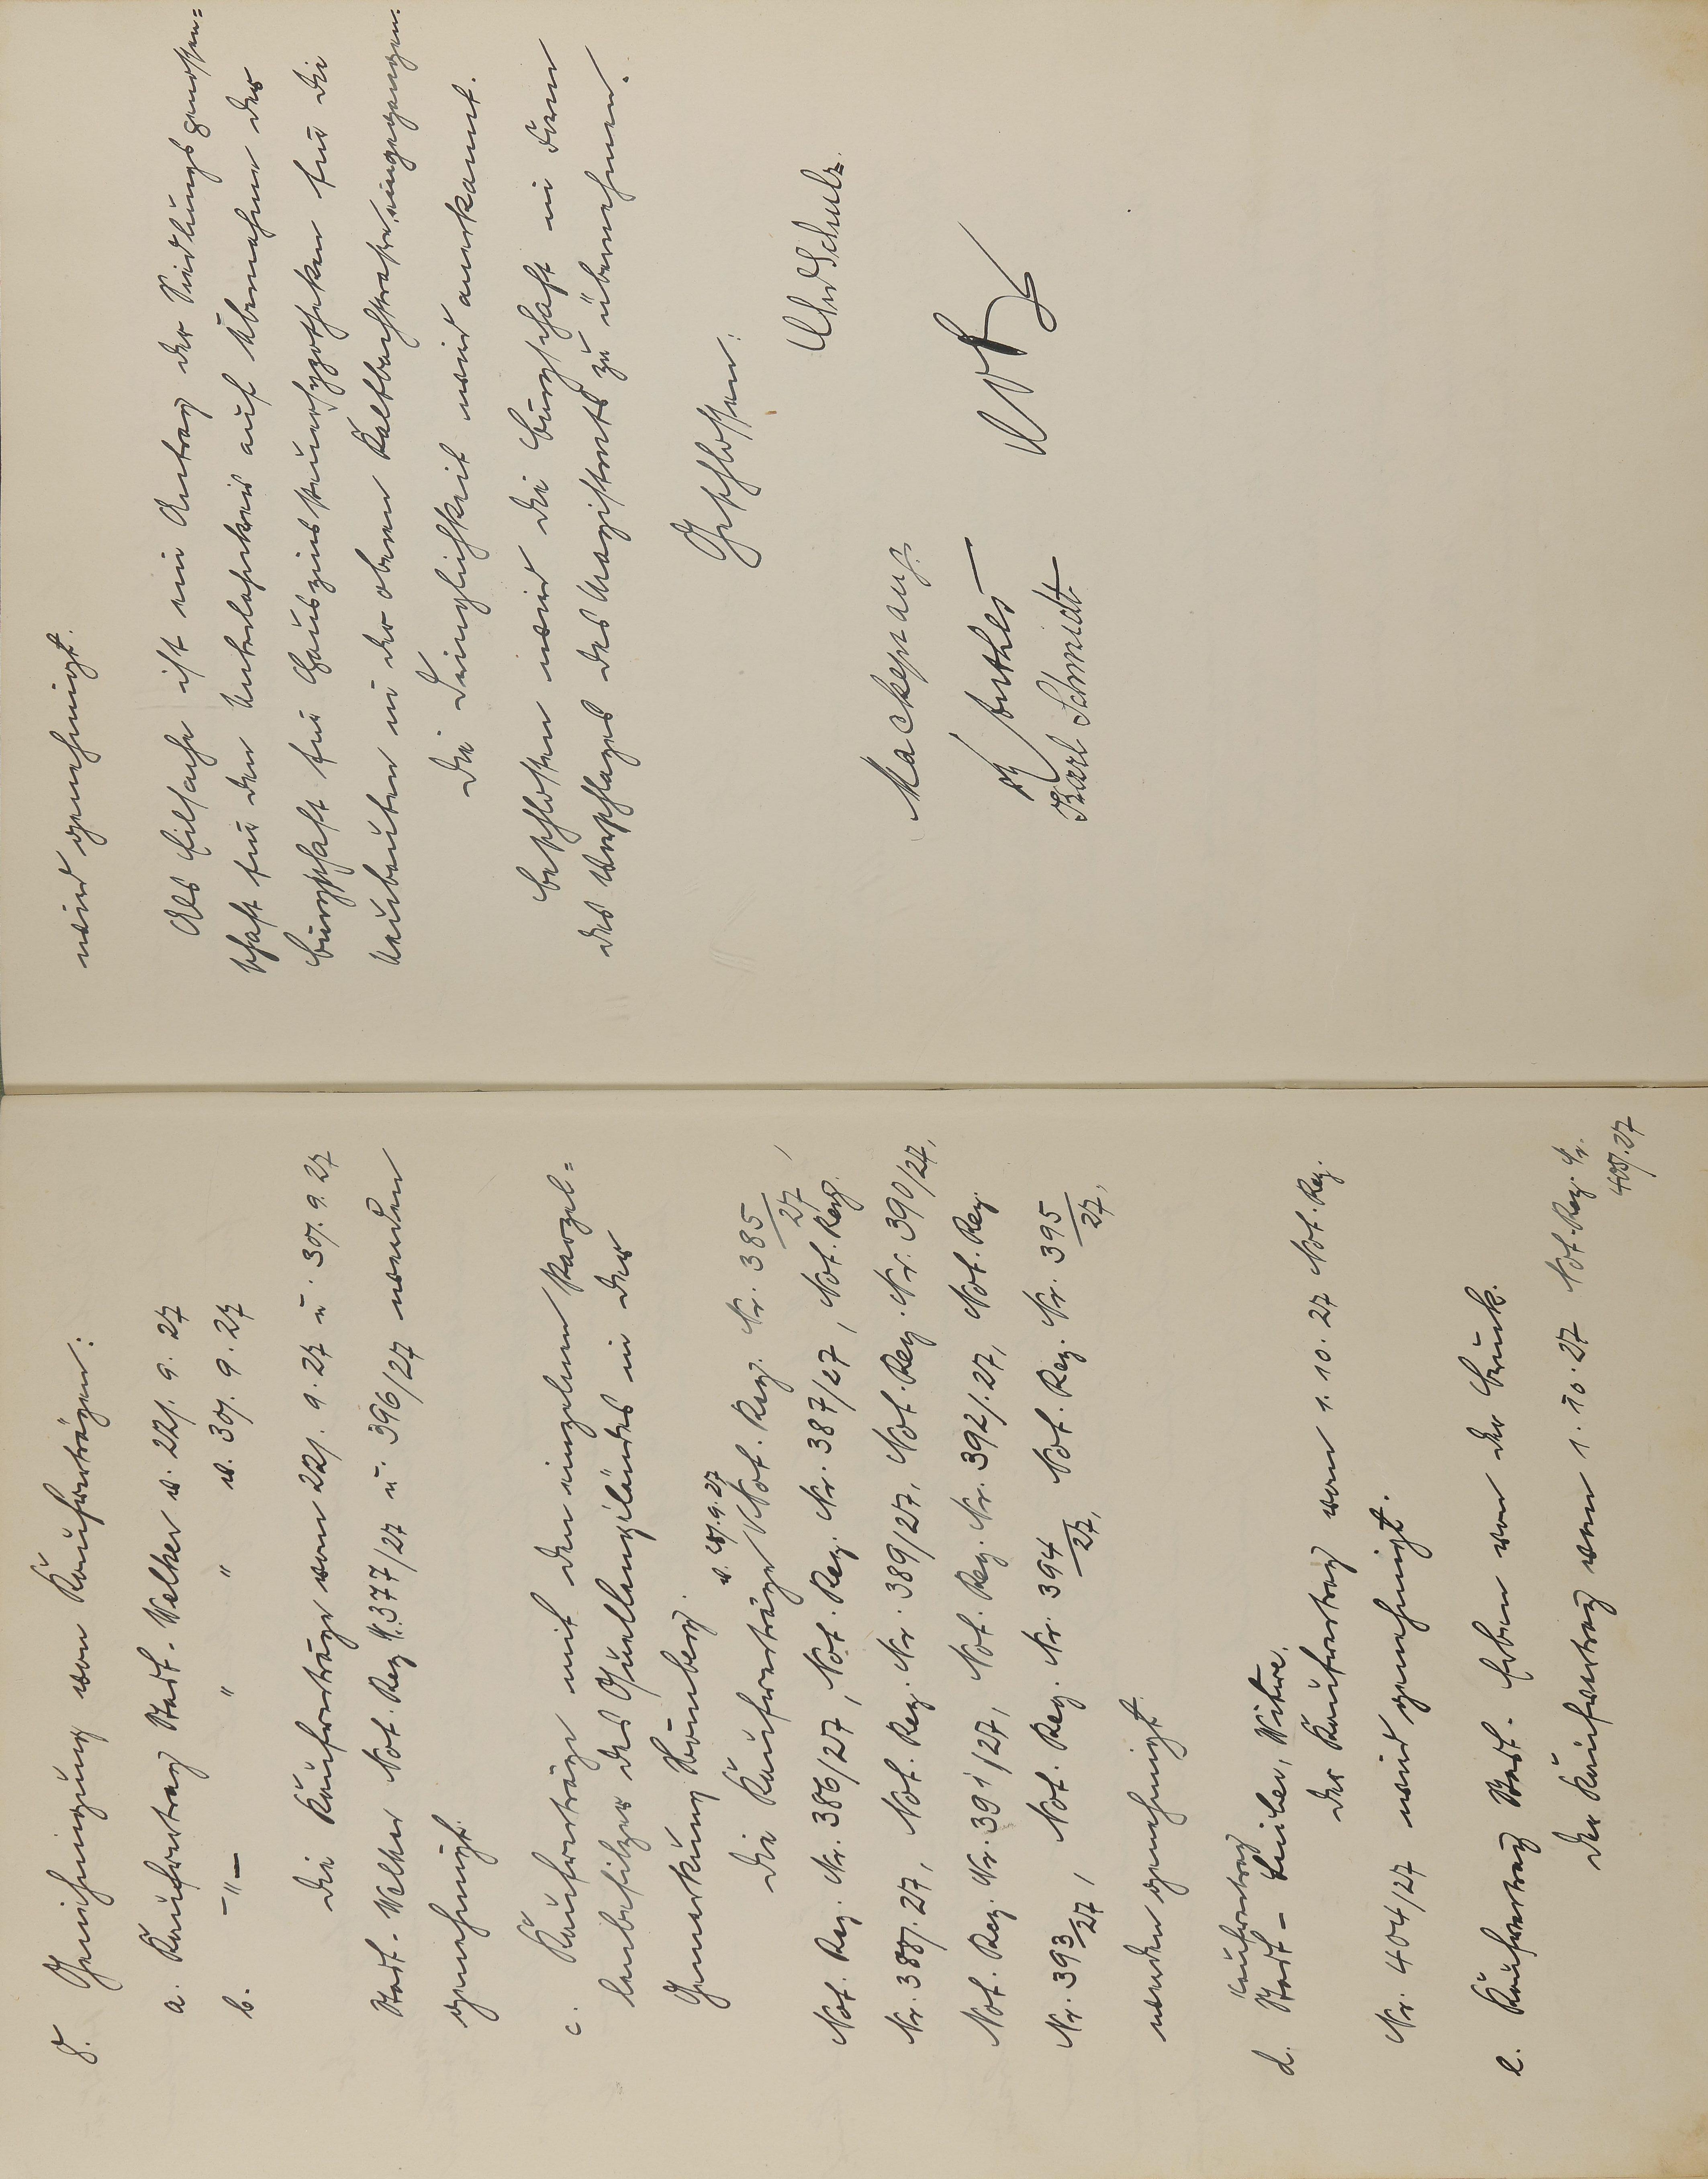 8. Genehmigung von Kaufverträgen:
a. Kaufvertrag Stadt-Welker v. 22/. 9. 27
b. -"- " " v. 30/. 9. 27
Die Kaufverträge vom 22/. 9. 27 u. 30/. 9. 27
Stadt-Welker Not. Reg. N. 377/27 u. 396/27 werden
genehmigt.
c. Kaufverträge mit den einzelnen Parzel-
lenbesitzer des Quellengeländes in der
Gemarkung Bömberg.
Die Kaufverträge v. 28/. 9. 27 Not. Reg. Nr. 385/27,
Not. Reg. Nr. 386/27, Not. Reg. Nr. 387/27, Not. Reg.
Nr. 388/. 27, Not. Reg. Nr. 389/27, Not. Reg. Nr. 390/27,
Not. Reg. Nr. 391/27, Not. Reg. Nr. 392/. 27, Not. Reg.
Nr. 393/27, Not. Reg. Nr. 394/27, Not. Reg. Nr. 395/27,
werden genehmigt.
d. Kaufvertrag Stadt - Witwe.
Der Kaufvertrag vom 1. 10. 27 Not. Reg.
Nr. 404/27 wird genehmigt.
e. Kaufvertrag Stadt - Erben von der
Der Kaufvertrag vom 1. 10. 27 Not. Reg. Nr.
405/. 27
wird genehmigt.
Als Eilsache ist ein Antrag der Siedlungsgenossen-
schaft für den Unterlahnkreis auf Übernahme der
Bürgschaft für Hauszinssteuerhypotheken für die
Neubauten in der oberen Kaltbachstraße eingegangen.
Die Dringlichkeit wird anerkannt.
Beschlossen wird die Bürgschaft in Sinne
des Vorschlages des Magistrats zu übernehmen.
Geschlossen:
Mackeprang. Schulz.
Karl Schmidt